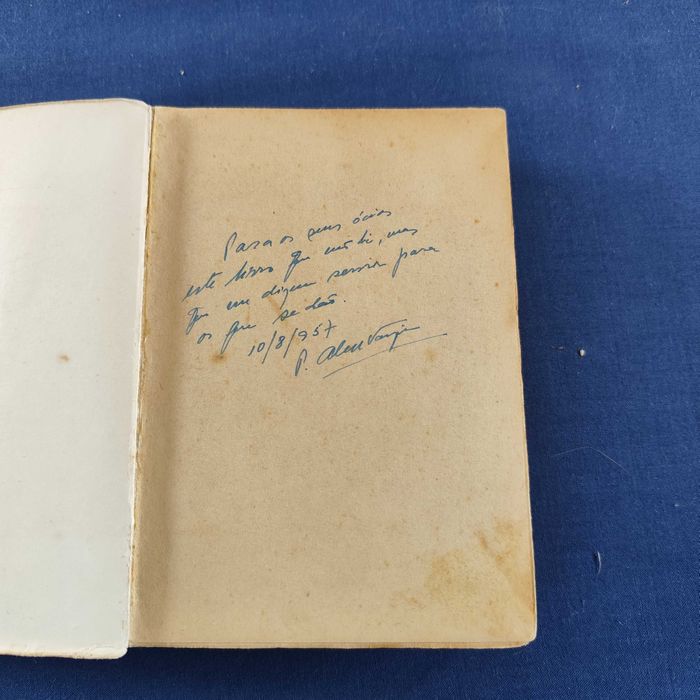 Para os seus ócios
este livro que não li, mas
que me dizem servir para
os que se dão.
10/8/957
P. Alen